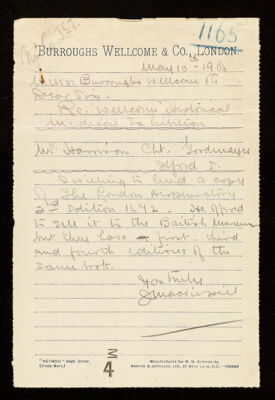 1165
BURROUGHS WELLCOME & CO., LONDON.
May 10th 1906
Messrs Burroughs Wellcome & Co
Dear Sirs
Re. Wellcome's Historical
Medical Exhibition
Mr Harrison Cht. Goodmayes
Ilford E.
Is willing to lend a copy
of The London Dispensatory
2nd Edition 1672. He offered
to sell it to the British Museum
but they have first, third
and fourth editions of the
same book.
Yrs truly
M
4
"METHOID" Dept. Order.
(Trade Mark.)
Manufactured for H. S. Wellcome by